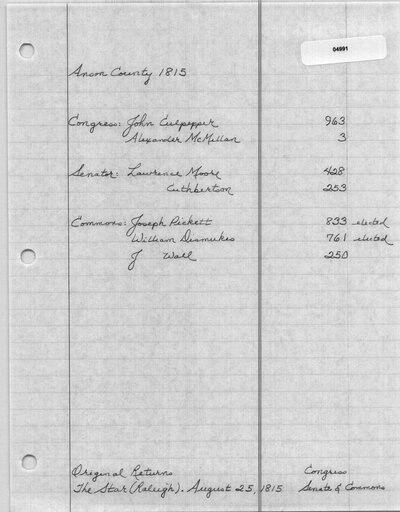 04991
Anson County 1815
Congress: John Culpepper 963
Alexander McMillan 3
Senator: Lawrence Moore 428
Cuthbertson 253
Commons: Joseph Pickett 833 elected
William Dismukes 761 elected
J Wall 250
Original Returns Congress
The Star (Raleigh). August 25, 1815 Senate & Commons